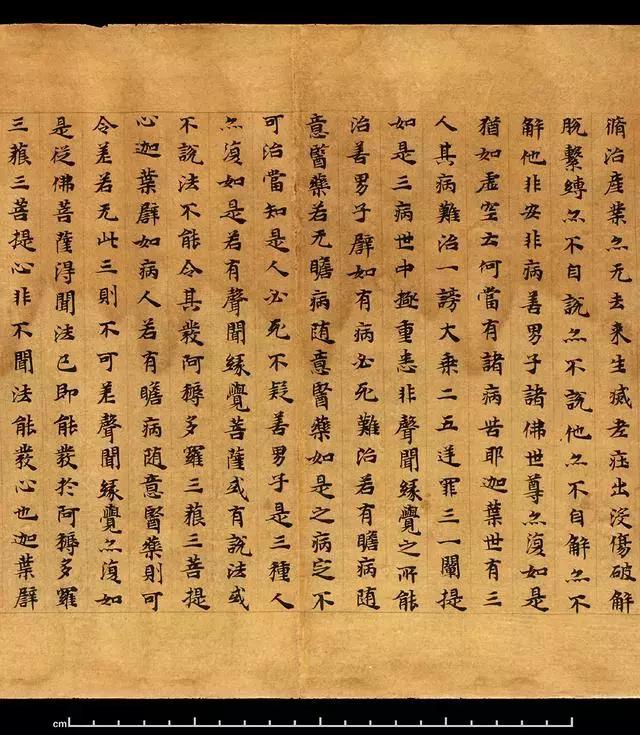 脩治產業亦无去来生滅老壯出沒傷破解
脫繫縛亦不自說亦不說他亦不自解亦不
解他非安非病善男子諸佛世尊亦復如是
猶如虛空云何當有諸病苦耶迦葉世有三
人其病難治一謗大乘二五逆罪三一闡提
如是三病世中極重悉非聲聞緣覺之所能
治善男子譬如有病必死難治若有瞻病随
意醫藥若无瞻病随意醫藥如是之病定不
可治當知是人必死不疑善男子是三種人
亦復如是若有聲聞緣覺菩薩或有說法或
不說法不能令其發阿耨多羅三藐三菩提
心迦葉譬如病人若有瞻病随意醫藥則可
令差若无此三則不可差聲聞緣覺亦復如
是從佛菩薩得聞法已即能發於阿耨多羅
三藐三菩提心非不聞法能發心也迦葉譬
cm